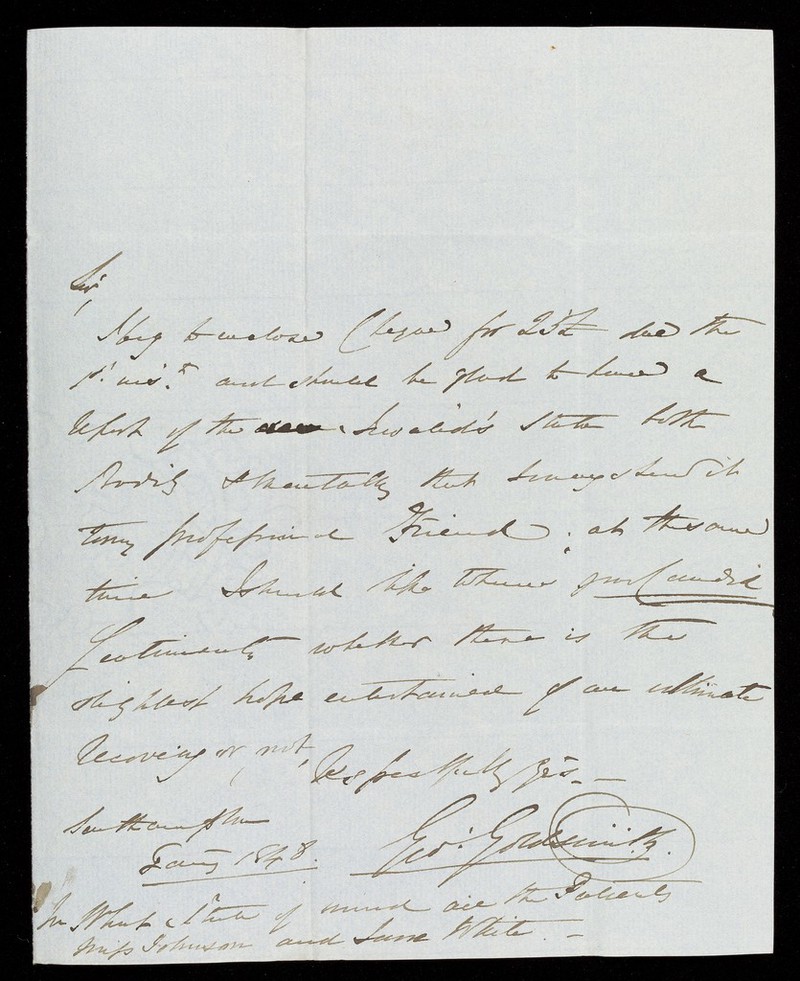 Sir,
I beg to enclose Cheque for 25£ due the
1st inst. and should be glad to have a
report of the Invalid's state both
Bodily & Mentally that I may send it
to my professional Friend, at the same
time I should like to have your candid
Sentiments whether there is the
slightest hope entertained of an ultimate
recovery or not,
Respectfully Yrs. —
Southampton
Jany 1848.
Geo: Goldsmith.
In What State of mind are the Patients
Miss Johnson and Jane White. —